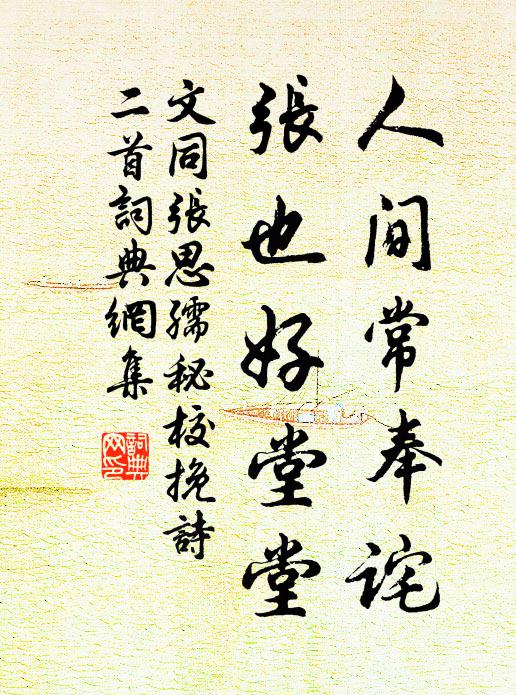 人間常奉詫
張也好堂堂
文同張思孺秘校挽詩
二首詞典網集
詞典
网印